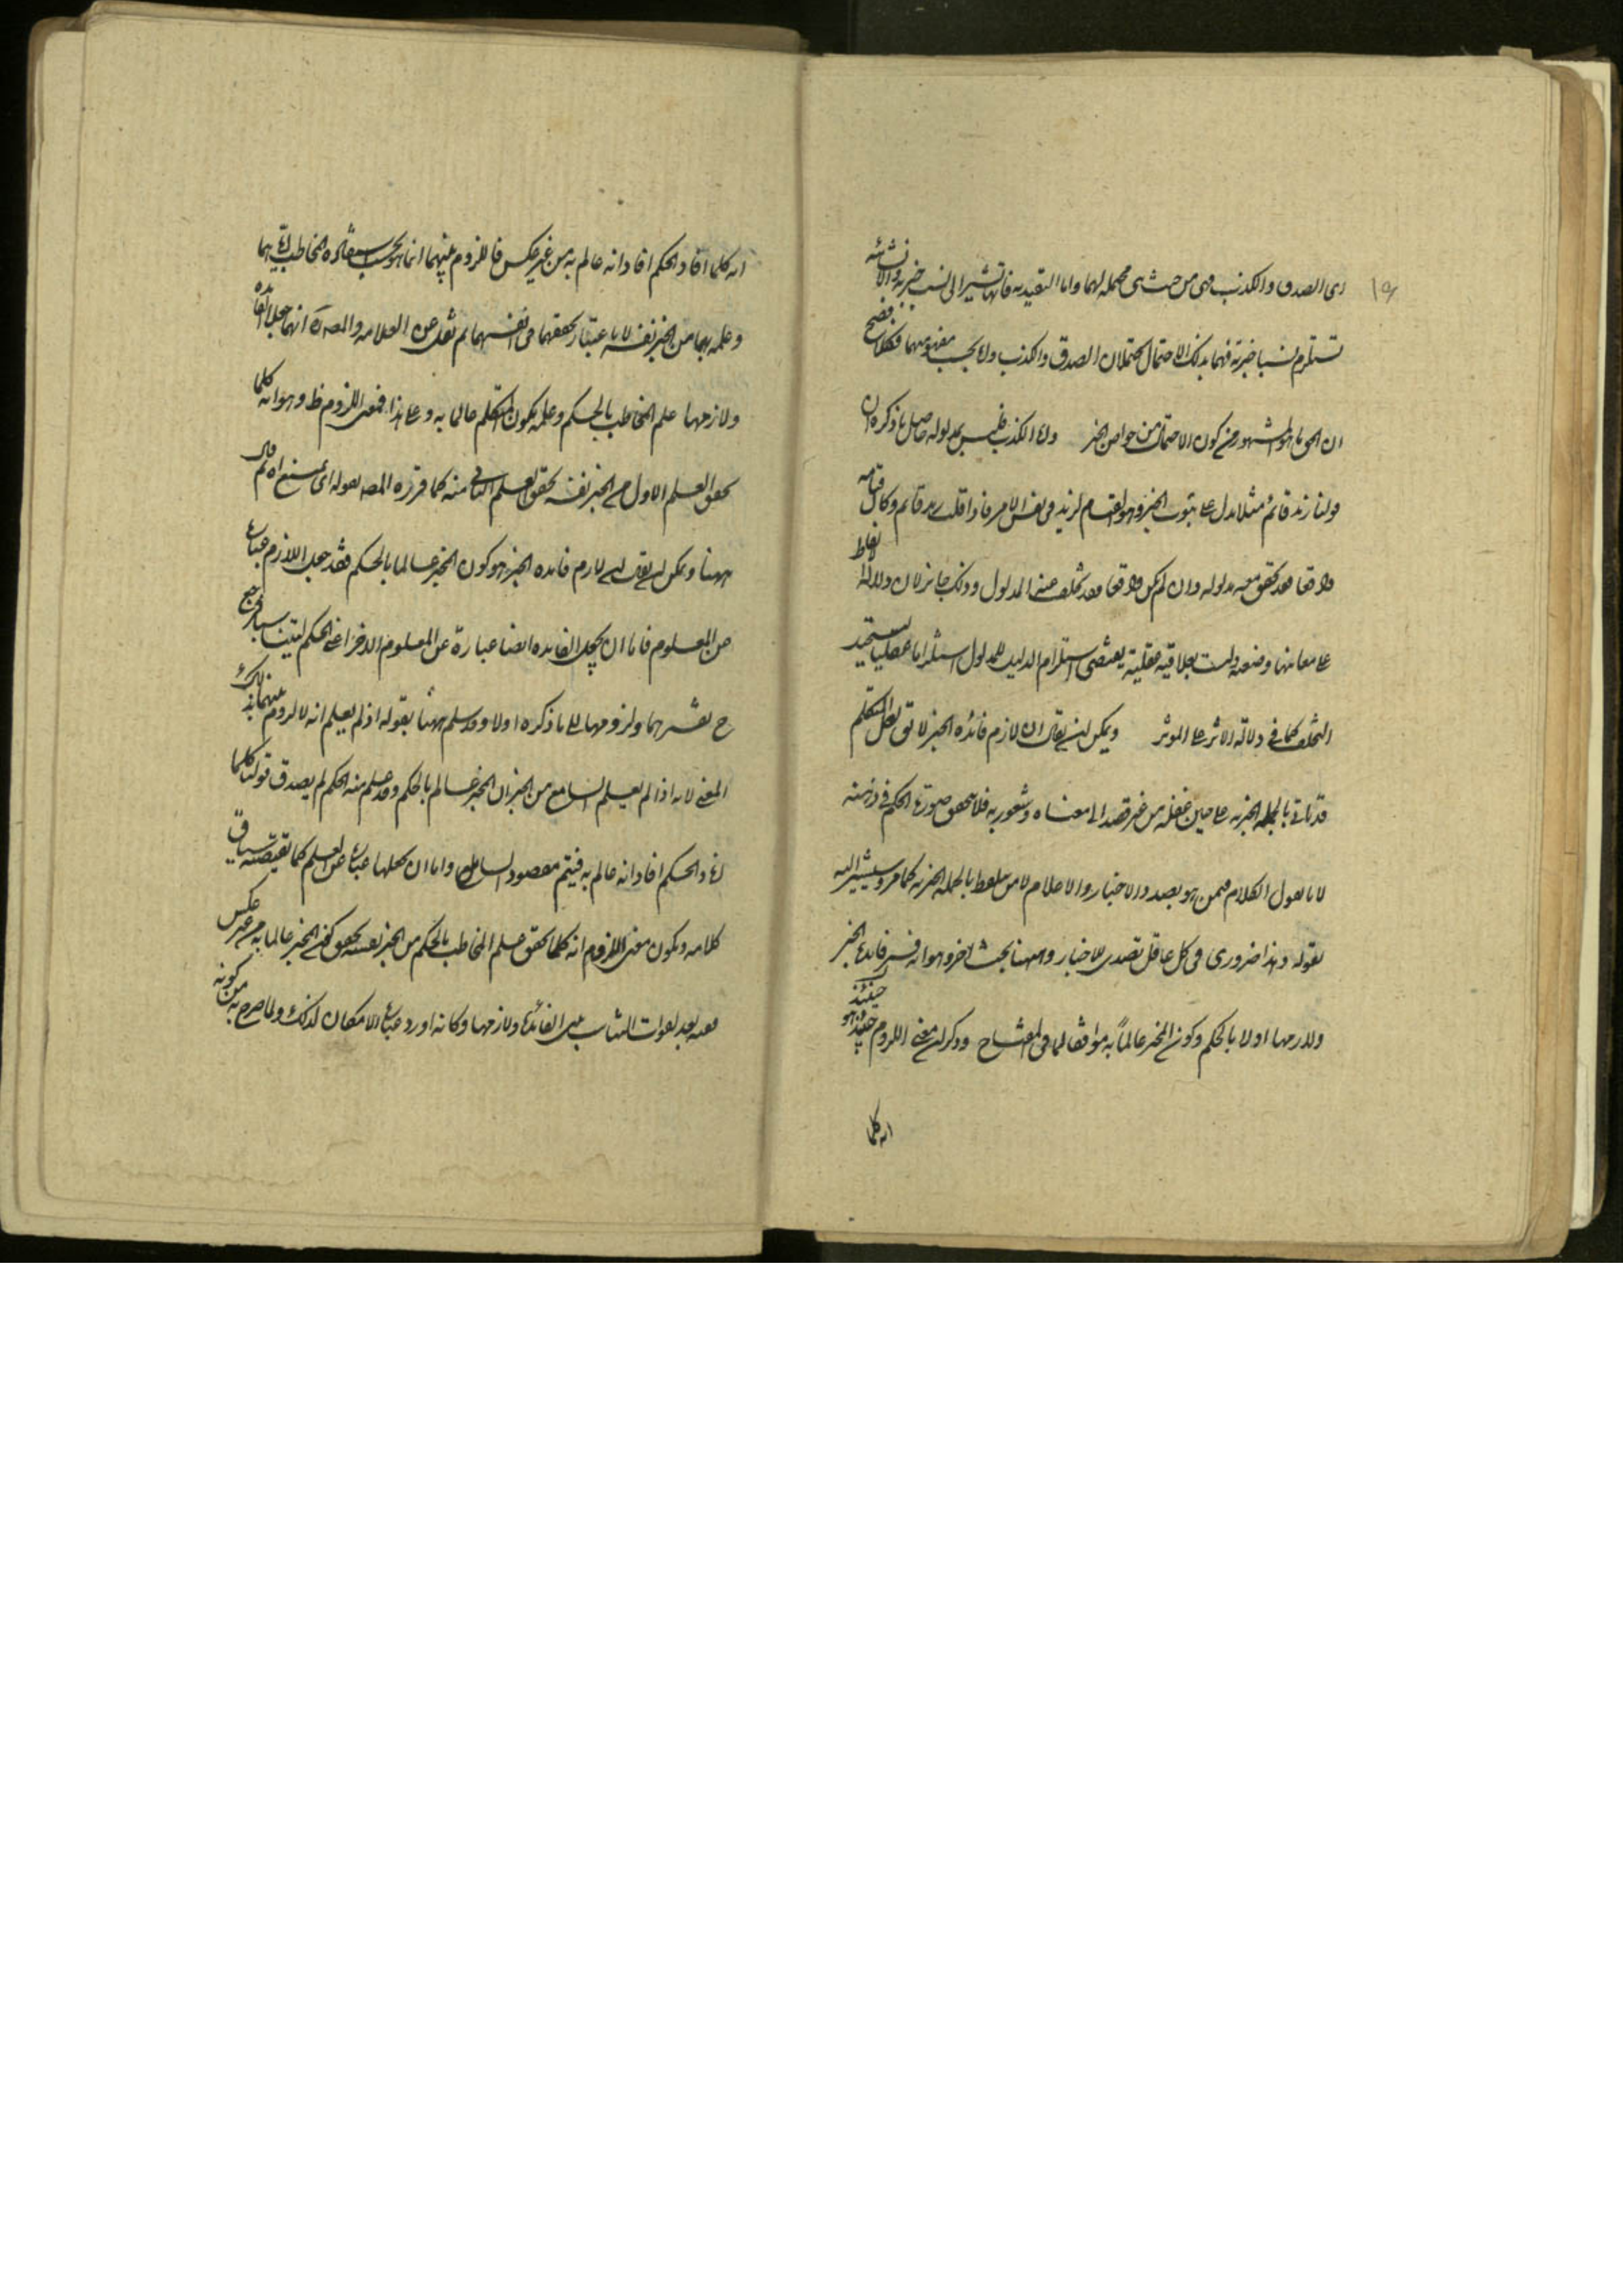 اى الصدق والكذب فهى من حيث هى محتملة لهما واما التقييدية فانها تشير الى نسب خبرية والانشائية
تستلزم نسبا خبرية فهما بذلك الاحتمال يحتملان الصدق والكذب ولا بحسب مفهومهما فكلا فصح
ان الحق ما هو المشهور من كون الاحتمال من خواص الخبر واما الكذب فليس بمدلوله حاصل ما ذكره ان
قولنا زيد قائم مثلا يدل على ثبوت الخبر وهو القيام لزيد فى نفس الامر فاذا قلت زيد قائم وكان قيامه
واقعا فقد تحقق معه مدلوله وان لم يكن واقعا فقد تخلف عنه المدلول وذلك جائز لان دلالة الالفاظ
على معانيها وضعية وليست بعلاقة عقلية يقتضى استلزام الدليل للمدلول استلزاما عقليا يستحيل
التخلف كما فى دلالة الاثر على المؤثر ويمكن ان يقال ان لازم فائدة الخبر لا تق لعل المتكلم
قد ياتى بالجملة الخبرية على حين غفلة من غير قصد الى معناه وشعور به فلا يتحقق صورة الحكم فى ذهنه
لانا نقول الكلام فيمن هو بصدد الاخبار والاعلام لا من تلفظ بالجملة الخبرية كما مر وسيشير اليه
بقوله وهذا ضرورى فى كل عاقل تصدى للاخبار وههنا بحث اخر وهو انه فسر فائدة الخبر
ولازمها اولا بالحكم وكون المخبر عالما به موافقا لما فى المفتاح وذكر ان معنى اللزوم حينئذ هو
انه كلما
انه كلما افاد الحكم افاد انه عالم به من غير عكس فاللزوم بينهما انما هو بحسب استفادة المخاطب اياهما
وعلمه بهما من الخبر نفسه لا باعتبار تحققهما فى انفسهما ثم نقل عن العلامة والمصـ انهما جعلا الفائدة
ولازمها علم المخاطب بالحكم وعلمه بكون المتكلم عالما به وعلى هذا فمعنى اللزوم ظ وهو انه كلما
تحقق العلم الاول من الخبر نفسه تحقق العلم الثانى منه كما قرره المصـ بقوله اى يمتنع اه ثم قال
ههنا ويمكن ان يقال ان لازم فائدة الخبر هو كون المخبر عالما بالحكم فقد جعل اللازم عبارة
عن المعلوم فاما ان يجعل الفائدة ايضا عبارة عن المعلوم الاخر اعنى الحكم ليتناسبا فيرجع
ح تفسيرهما ولزومهما الى ما ذكره اولا وقد سلم ههنا بقوله اذ لم يعلم انه لا لزوم بينهما بذلك
المعنى لانه اذا لم يعلم السامع من الخبر ان المخبر عالم بالحكم وقد علم منه الحكم لم يصدق قولنا كلما
افاد الحكم افاد انه عالم به فيتم مقصود السائل واما ان يجعلها عبارة عن العلم كما يقتضيه سياق
كلامه ويكون معنى اللزوم انه كلما تحقق علم المخاطب بالحكم من الخبر نفسه تحقق كون المخبر عالما به من غير عكس
ففيه بعد لفوات التناسب بين الفائدة ولازمها وكانه اورد عبارة الامكان لذلك ولما صرح به من كونه